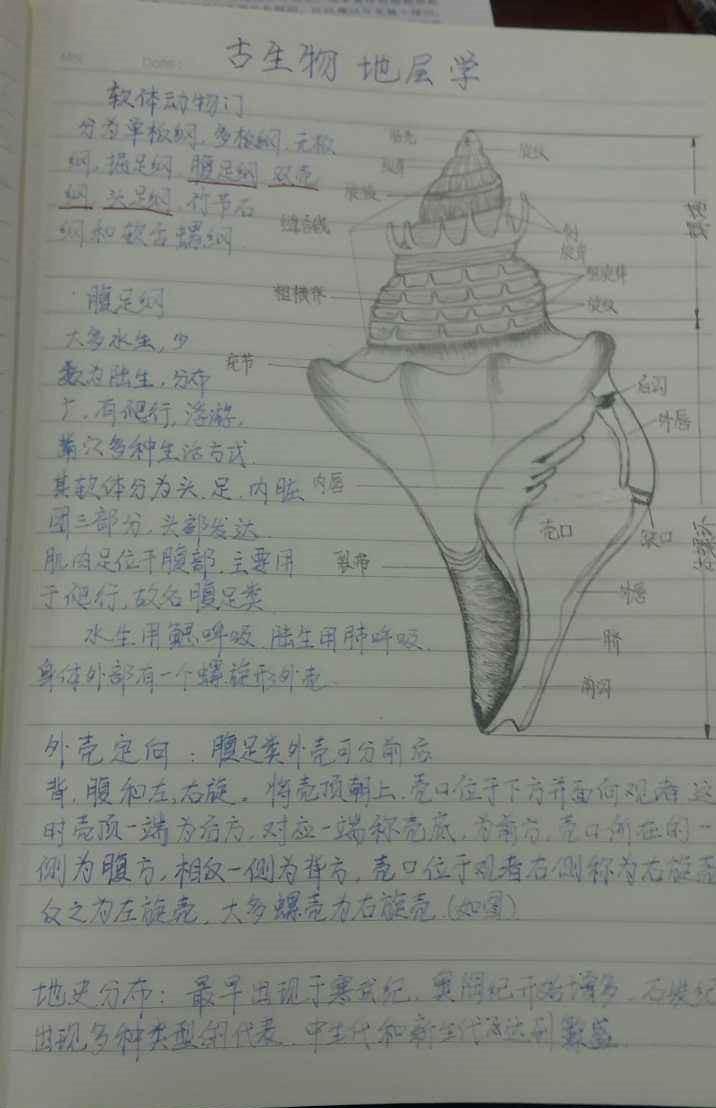 古生物地层学
软体动物门
分为单板纲,多板纲,无板
纲,掘足纲,腹足纲,双壳
纲,头足纲,竹节石
纲和软舌螺纲
腹足纲
大多水生,少
数为陆生,分布
广,有爬行,浮游,
多种生活方式.
其软体分为头.足.内脏
团三部分.头部发达.
肌肉足位于腹部.主要用
于爬行,故名腹足类.
水生用鳃呼吸.陆生用肺呼吸.
身体外部有一个螺旋形外壳.
胎壳
旋纹
缝合线
粗横脊
旋纹
壳节
后沟
外唇
内唇
壳口
缺口
外唇
脐
前沟
外壳定向:腹足类外壳可分前后
背,腹和左,右旋。将壳顶朝上.壳口位于下方并面向观者.这
时壳顶一端为后方,对应一端称壳底,为前方,壳口所在的一
侧为腹方,相反一侧为背方,壳口位于观者右侧称为右旋壳
反之为左旋壳,大多螺壳为右旋壳.(如图)
地史分布:最早出现于寒武纪,奥陶纪开始增多.石炭纪
出现多种类型的代表.中生代和新生代达到繁盛